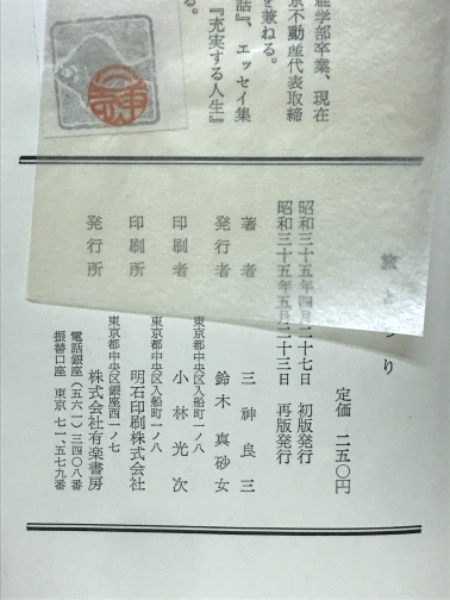 産学部卒業、現在
京不動産代表取締
を兼ねる。
話』、エッセイ集
『充実する人生』
る。
定価 二五〇円
昭和三十五年四月二十七日 初版発行
昭和三十五年五月二十三日 再版発行
著者 三神良三
発行者 鈴木真砂女
東京都中央区入船町一ノ八
印刷者 小林光次
東京都中央区入船町一ノ八
印刷所 明石印刷株式会社
東京都中央区銀座西一ノ七
発行所 株式会社有楽書房
電話銀座(五六一)三四〇八番
振替口座 東京 七一、五七九番